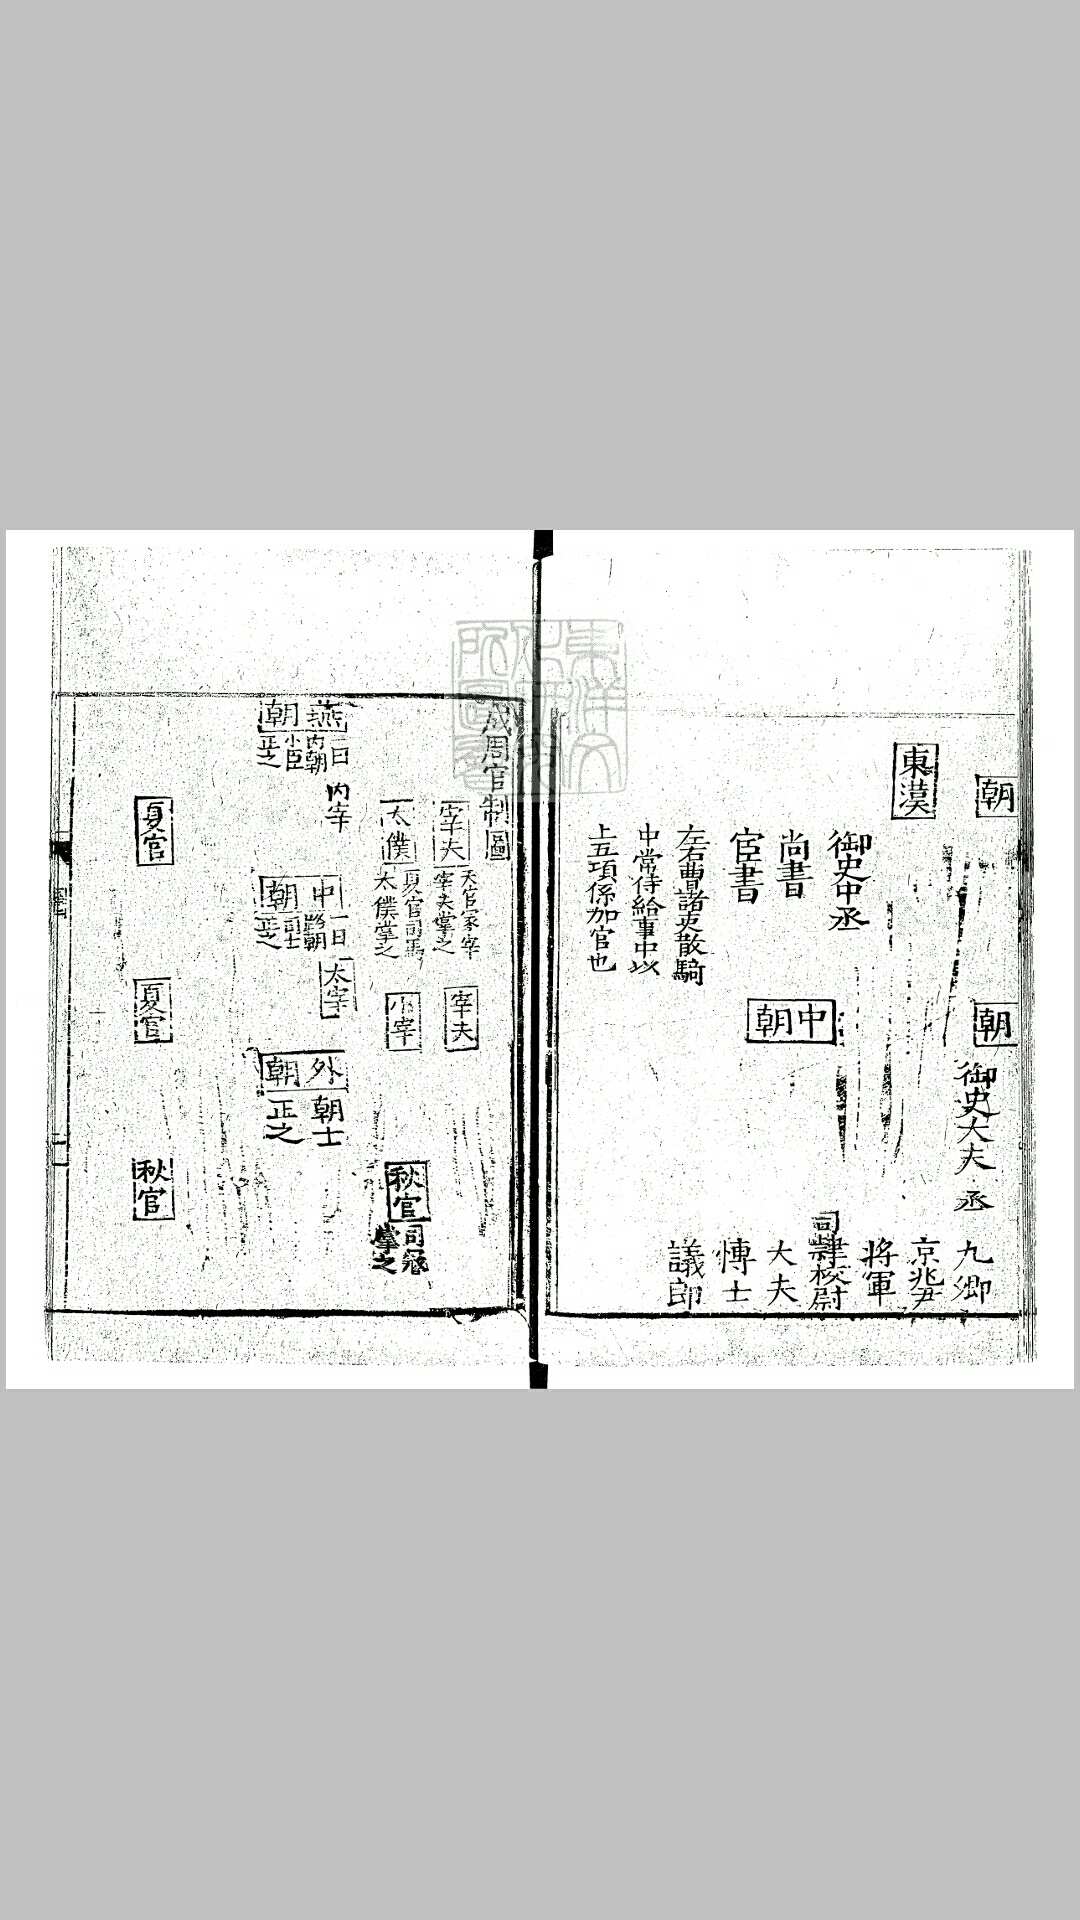 朝
朝
御史大夫
丞
九卿
京兆尹
東漢
御史中丞
將軍
司隸校尉
尚書
中朝
大夫
宦書
博士
左右曹諸吏散騎
議郎
中常侍給事中以
上五項係加官也
成周官制圖
宰夫
天官冢宰
宰夫掌之
宰夫
太僕
夏官司馬
太僕掌之
小宰
秋官
司寇
掌之
燕朝
一曰
內朝
小臣
正之
內宰
中朝
一曰
路朝
司士
正之
太宰
外朝
朝士
正之
夏官
夏官
秋官